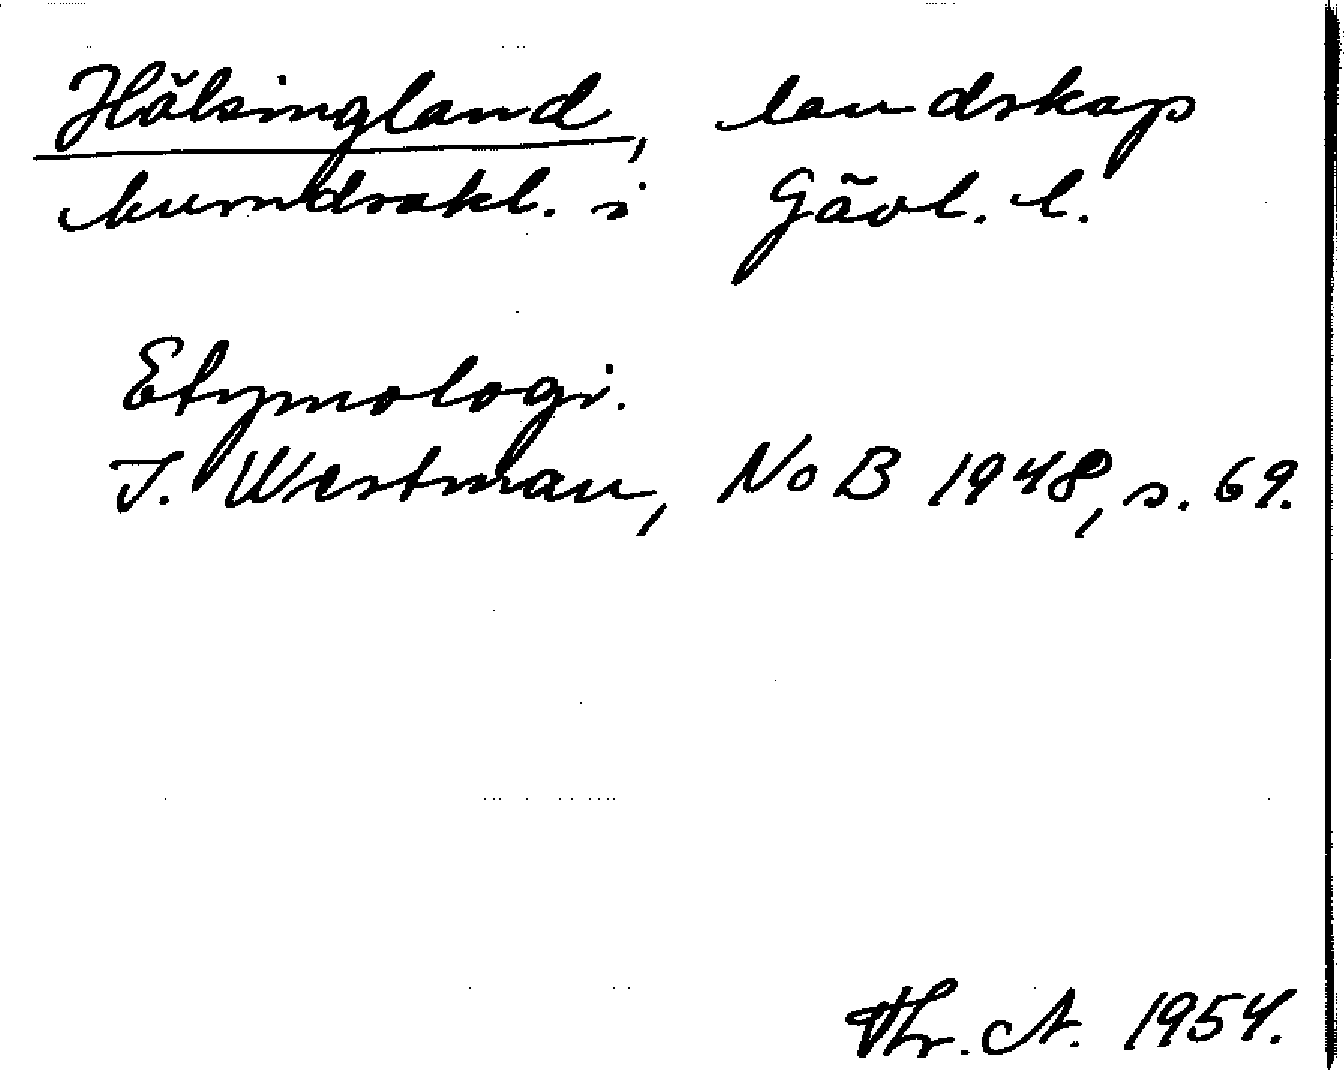 Hälsingland, landskap
huvudsakl. i Gävl. l.
Etymologi.
I. Westman, NoB 1948, s. 69.
Thr. A. 1954.